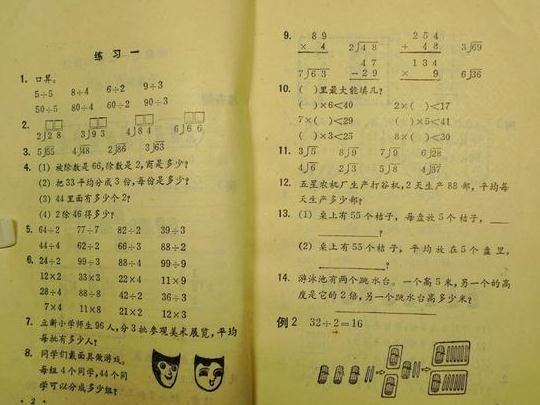 练习一
1. 口算。
5÷5 8÷4 6÷2 9÷3
50÷5 80÷4 60÷2 90÷3
2. 2)28 3)93 4)84 6)66
3. 5)55 4)48 2)86 3)63
4. (1) 被除数是66,除数是2,商是多少?
(2) 把33平均分成3份,每份是多少?
(3) 44里面有多少个2?
(4) 2除46得多少?
5. 64÷2 77÷7 82÷2 39÷3
44÷4 62÷2 66÷3 88÷2
6. 24÷2 99÷3 88÷4 99÷9
12×2 33×3 22×4 11×9
28÷4 88÷8 42÷2 36÷3
7×4 11×8 21×2 12×3
7. 立新小学师生96人,分3批参观美术展览,平均
每批有多少人?
8. 同学们戴面具做游戏。
每组4个同学,44个同
学可以分成多少组?
· 2 ·
9. 89 × 4 2)48 254 + 48 3)69
7)63 47 - 29 134 × 9 6)36
10. ( )里最大能填几?
( )×6<40 2×( )<17
7×( )<29 ( )×5<41
( )×3<25 8×( )<30
11. 3)5 8)9 7)9 6)28
4)6 2)3 5)8 4)37
12. 五星农机厂生产打谷机,2天生产88部,平均每
天生产多少部?
13. (1) 桌上有55个桔子,每盘放5个桔子,
?
(2) 桌上有55个桔子,平均放在5个盘里,
?
14. 游泳池有两个跳水台。一个高5米,另一个的高
度是它的2倍,另一个跳水台高多少米?
例2 32÷2=16